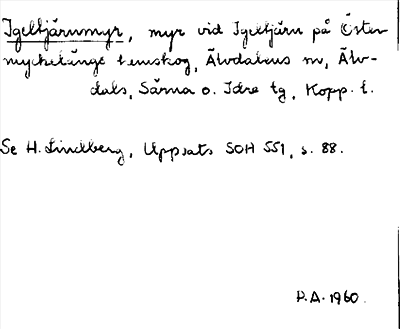 Igeltjärnmyr, myr vid Igeltjärn på Öster
myckelänge hemskog, Älvdalens sn, Älv-
dals, Särna o. Idre tg, Kopp. l.
Se H. Lindberg, Uppsats SOH 551, s. 88.
P.A. 1960.